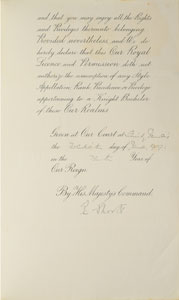 and that you may enjoy all the Rights
and Privileges thereunto belonging
Provided nevertheless, and We do
hereby declare that this Our Royal
Licence and Permission doth not
authorize the assumption of any Style
Appellation, Rank, Precedence, or Privilege
appertaining to a Knight Bachelor
of these Our Realms.
Given at Our Court at
the day of
in the Year of
Our Reign.
By His Majesty's Command